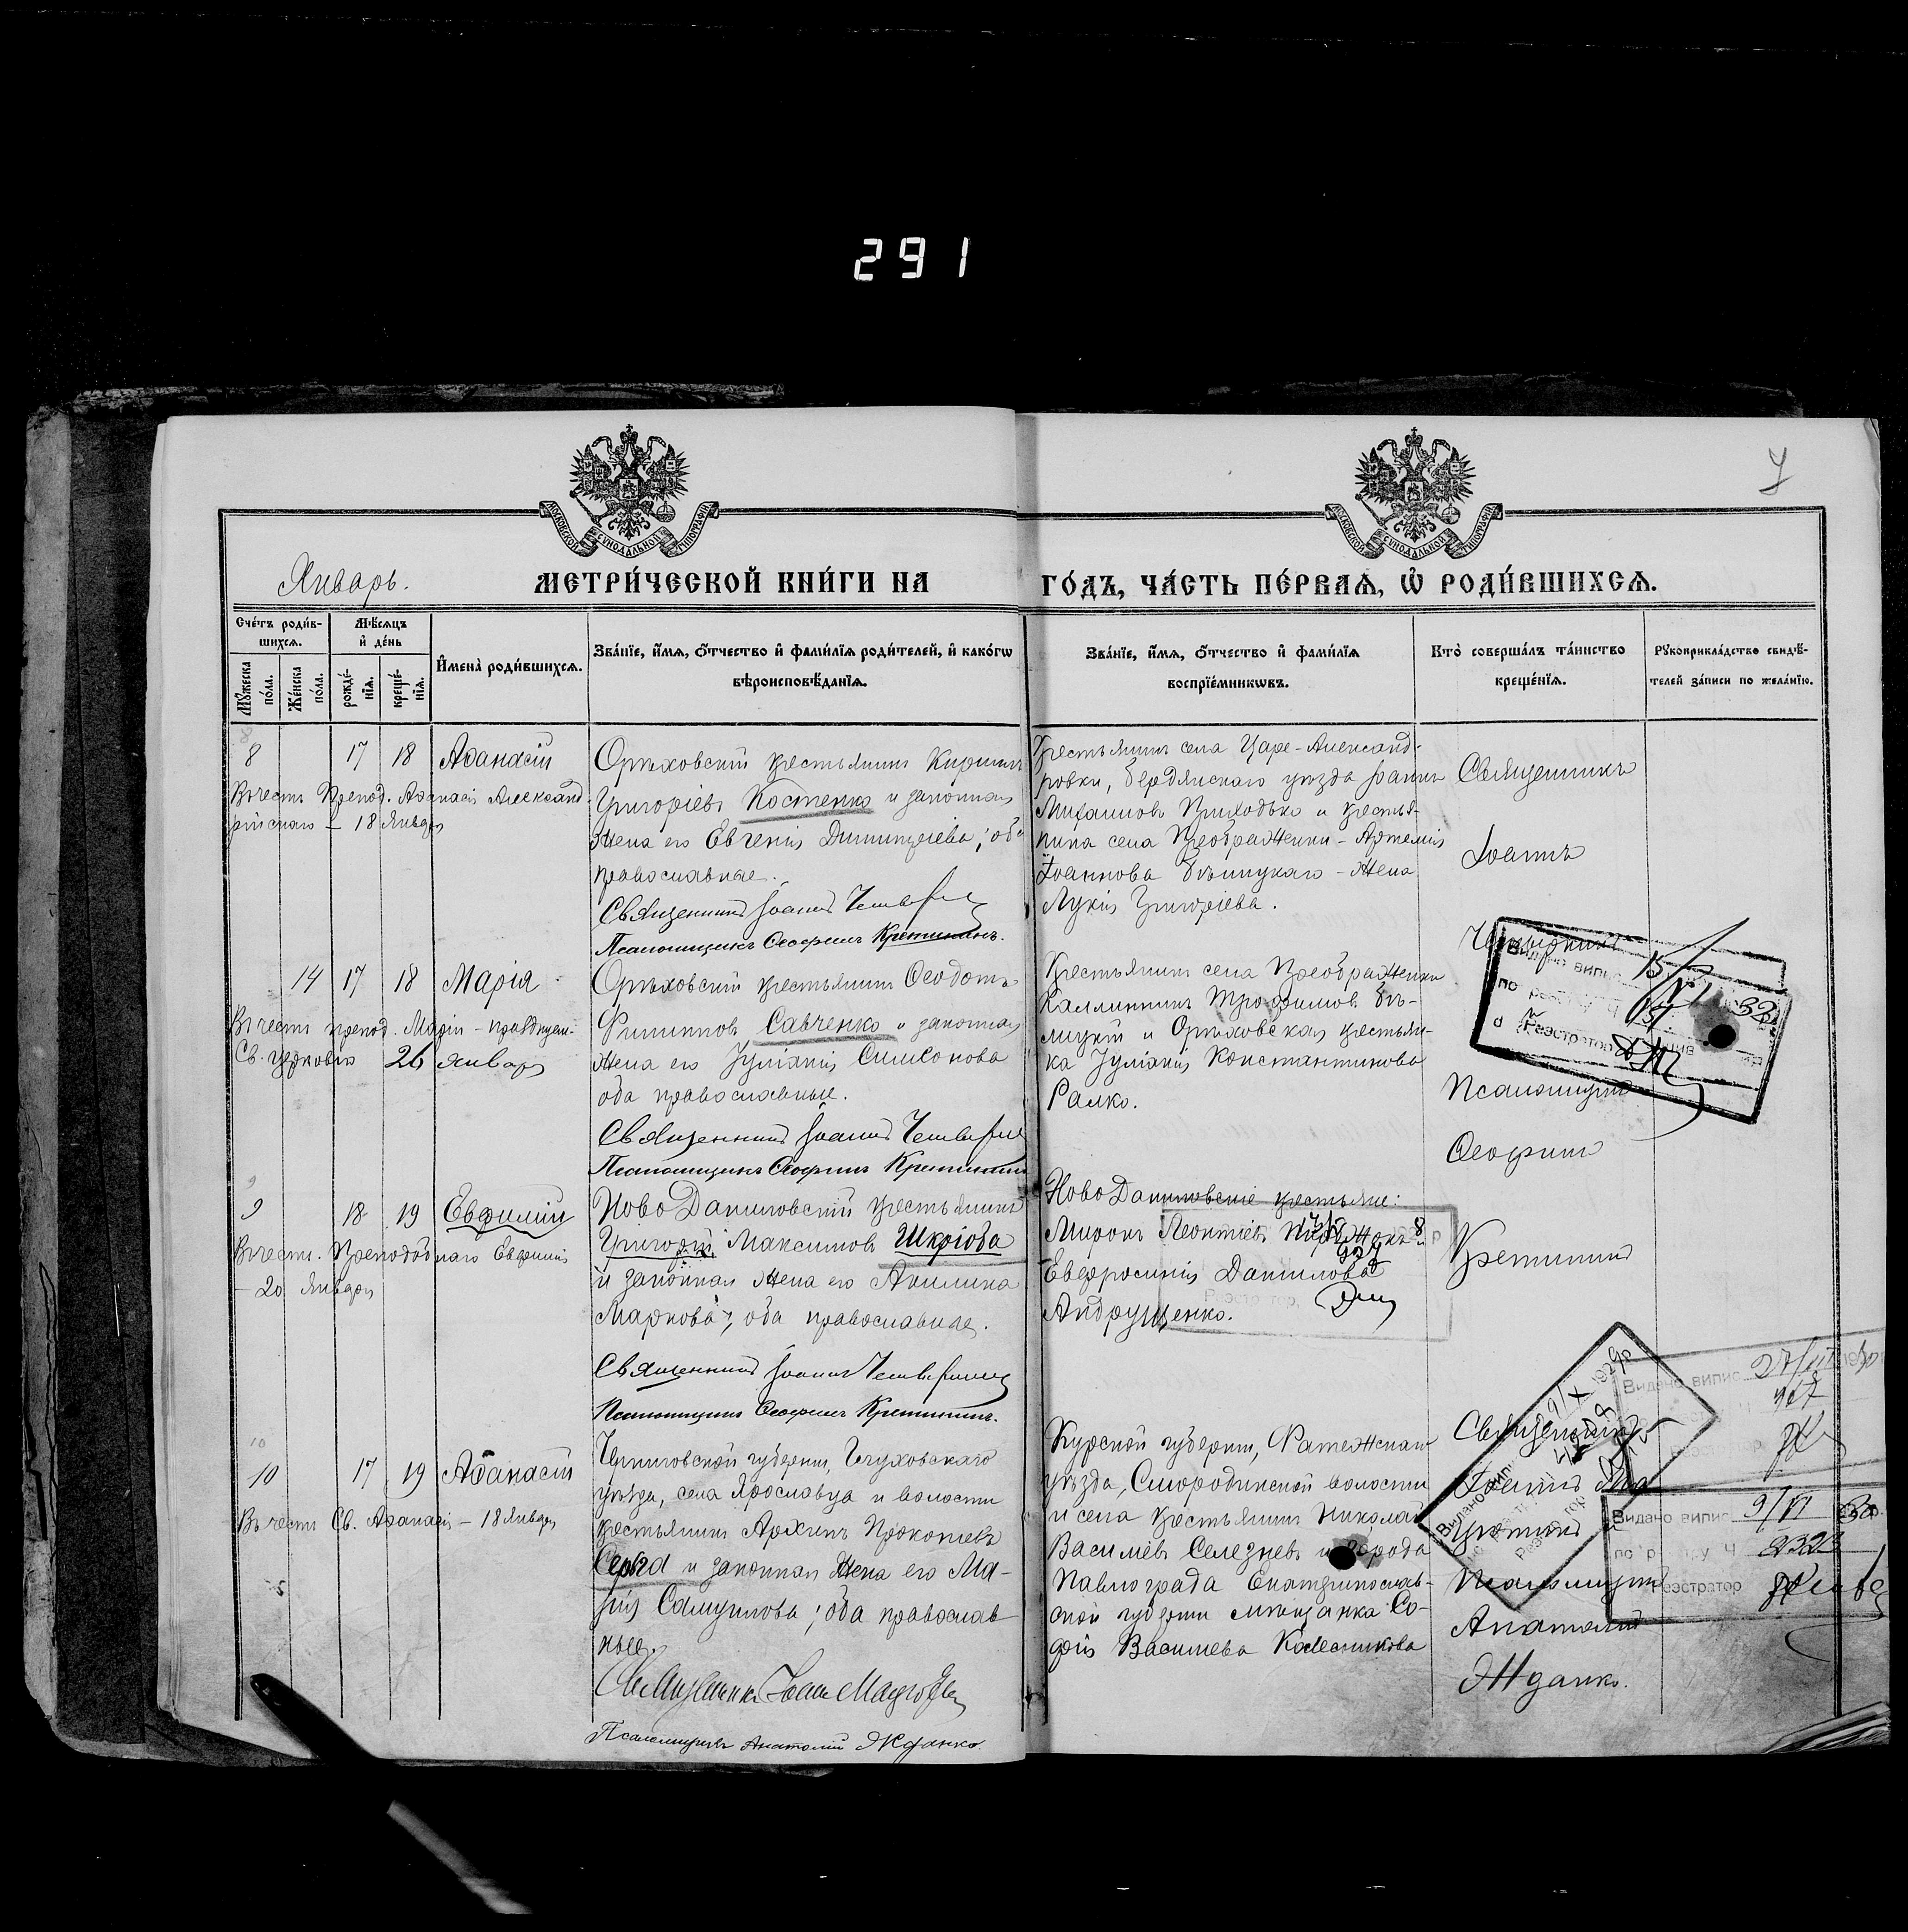 291
7
МОСКОВСКОЙ СѴНОДАЛЬНОЙ ТИПОГРАФІИ
МОСКОВСКОЙ СѴНОДАЛЬНОЙ ТИПОГРАФІИ
Январь.
МЕТРИ́ЧЕСКОЙ КНИ́ГИ НА ГО́ДЪ, ЧА́СТЬ ПЕ́РВАѦ, Ѡ҆ РОДИ́ВШИХСѦ.
Сче́тъ роди́в-
шихсѧ.
Мꙋ́жеска по́ла.
Же́нска по́ла.
Мѣ́сѧцъ
и҆ де́нь
рожде́-
нїѧ.
креще́-
нїѧ.
И҆мена̀ роди́вшихсѧ.
Зва́нїе, и҆́мѧ, ѻ҆́тчество и҆ фами́лїѧ роди́телей, и҆ како́гѡ
вѣроисповѣ́данїѧ.
Зва́нїе, и҆́мѧ, ѻ҆́тчество и҆ фами́лїѧ
воспрїе́мникѡвъ.
Кто̀ соверша́лъ та́инство
креще́нїѧ.
Рꙋкоприкла́дство свидѣ́-
телей за́писи по жела́нїю.
8 17 18 Аѳанасій
Въ честь Препод. Аѳанасія Александ-
рійскаго – 18 Января
Орѣховскій крестьянинъ Кириллъ
Григоріевъ Костенко и законная
жена его Евгенія Димитріева; оба
православные.
Священникъ Іоаннъ
Псаломщикъ Ѳеофилъ Кретининъ.
Крестьянинъ села Царе-Александ-
ровки, Бердянскаго уѣзда Іоаннъ
Михаиловъ Приходько и крестья-
нина села Преображенки – Артемія
Іоаннова Бѣлицкаго – жена
Лукія Григоріева.
Священникъ
Іоаннъ
14 17 18 Марія
Въ честь препод. Маріи – празднуем.
Св. церковію 26 января
Орѣховскій крестьянинъ Ѳеодотъ
Филипповъ Савченко и законная
жена его Іуліанія Симеонова
оба православные.
Священникъ Іоаннъ
Псаломщикъ Ѳеофилъ Кретининъ
Крестьянинъ села Преображенки
Каллиникъ Трофимовъ Бѣ-
лицкій и Орѣховская крестьян-
ка Іуліанія Константинова
Ралко.
Псаломщикъ
Ѳеофилъ
Кретининъ
9 18 19 Евфимій
Въ честь Преподобнаго Евфимія
– 20 Января
Ново Даниловскій крестьянинъ
Григорій Максимовъ Шкріоба
и законная жена его Акилина
Маркова; оба православные.
Священникъ Іоаннъ
Псаломщикъ Ѳеофилъ Кретининъ.
Ново Даниловскіе крестьяне:
Миронъ Леонтіевъ
Евфросинія Данилова
Андрущенко.
10 17 19 Аѳанасій
Въ честь Св. Аѳанасія – 18 Января
Черниговской губерніи, Глуховскаго
уѣзда, села Ярославца и волости
крестьянинъ Архипъ Прокопіевъ
Серьга и законная жена его Ма-
рія Самуилова; оба православ-
ные.
Псаломщикъ Анатолій Жданко.
Курской губерніи, Фатежскаго
уѣзда, Смородинской волости
и села крестьянинъ Николай
Василіевъ Селезневъ и города
Павлограда Екатеринослав-
ской губерніи мѣщанка Со-
фія Василіева Колесникова
Священникъ
Іоаннъ
Псаломщикъ
Анатолій
Жданко.
Видано випис 9/VI 30
2323
Реэстратор